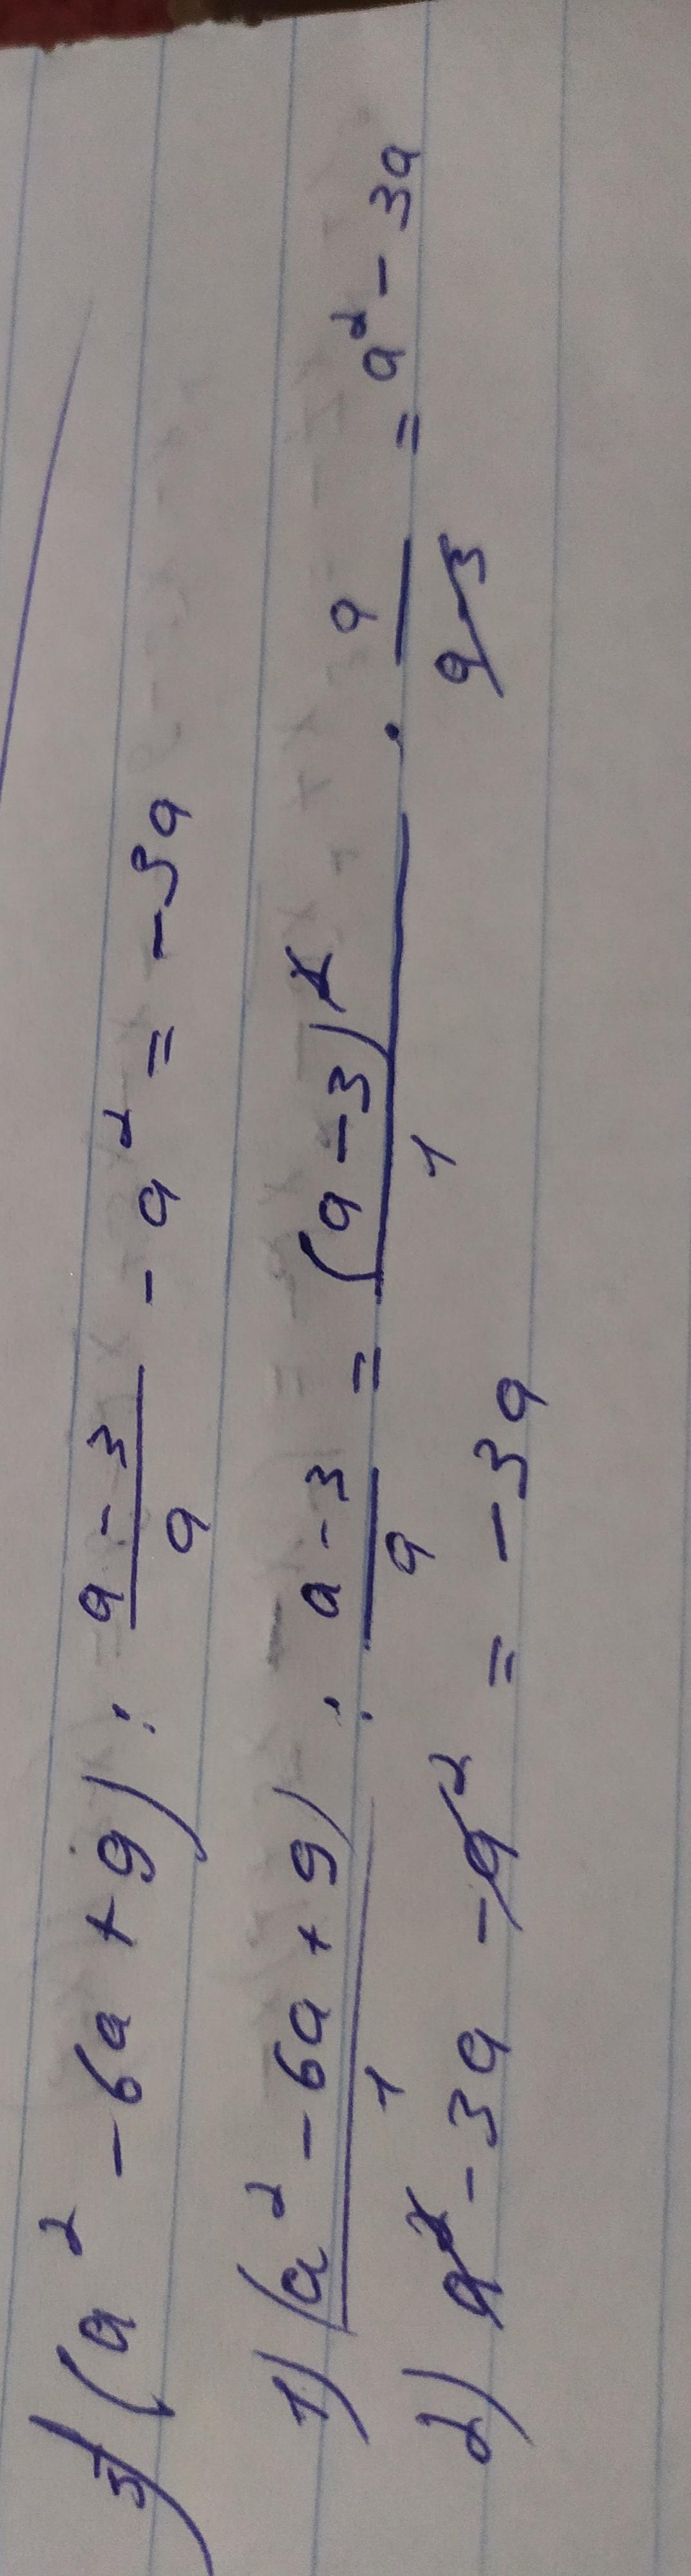 3) (a² - 6a + 9) : \frac{a - 3}{a} - a² = -3a
1) \frac{(a² - 6a + 9)}{1} : \frac{a - 3}{a} = \frac{(a - 3)²}{1} · \frac{a}{a - 3} = a² - 3a
2) a² - 3a - a² = -3a